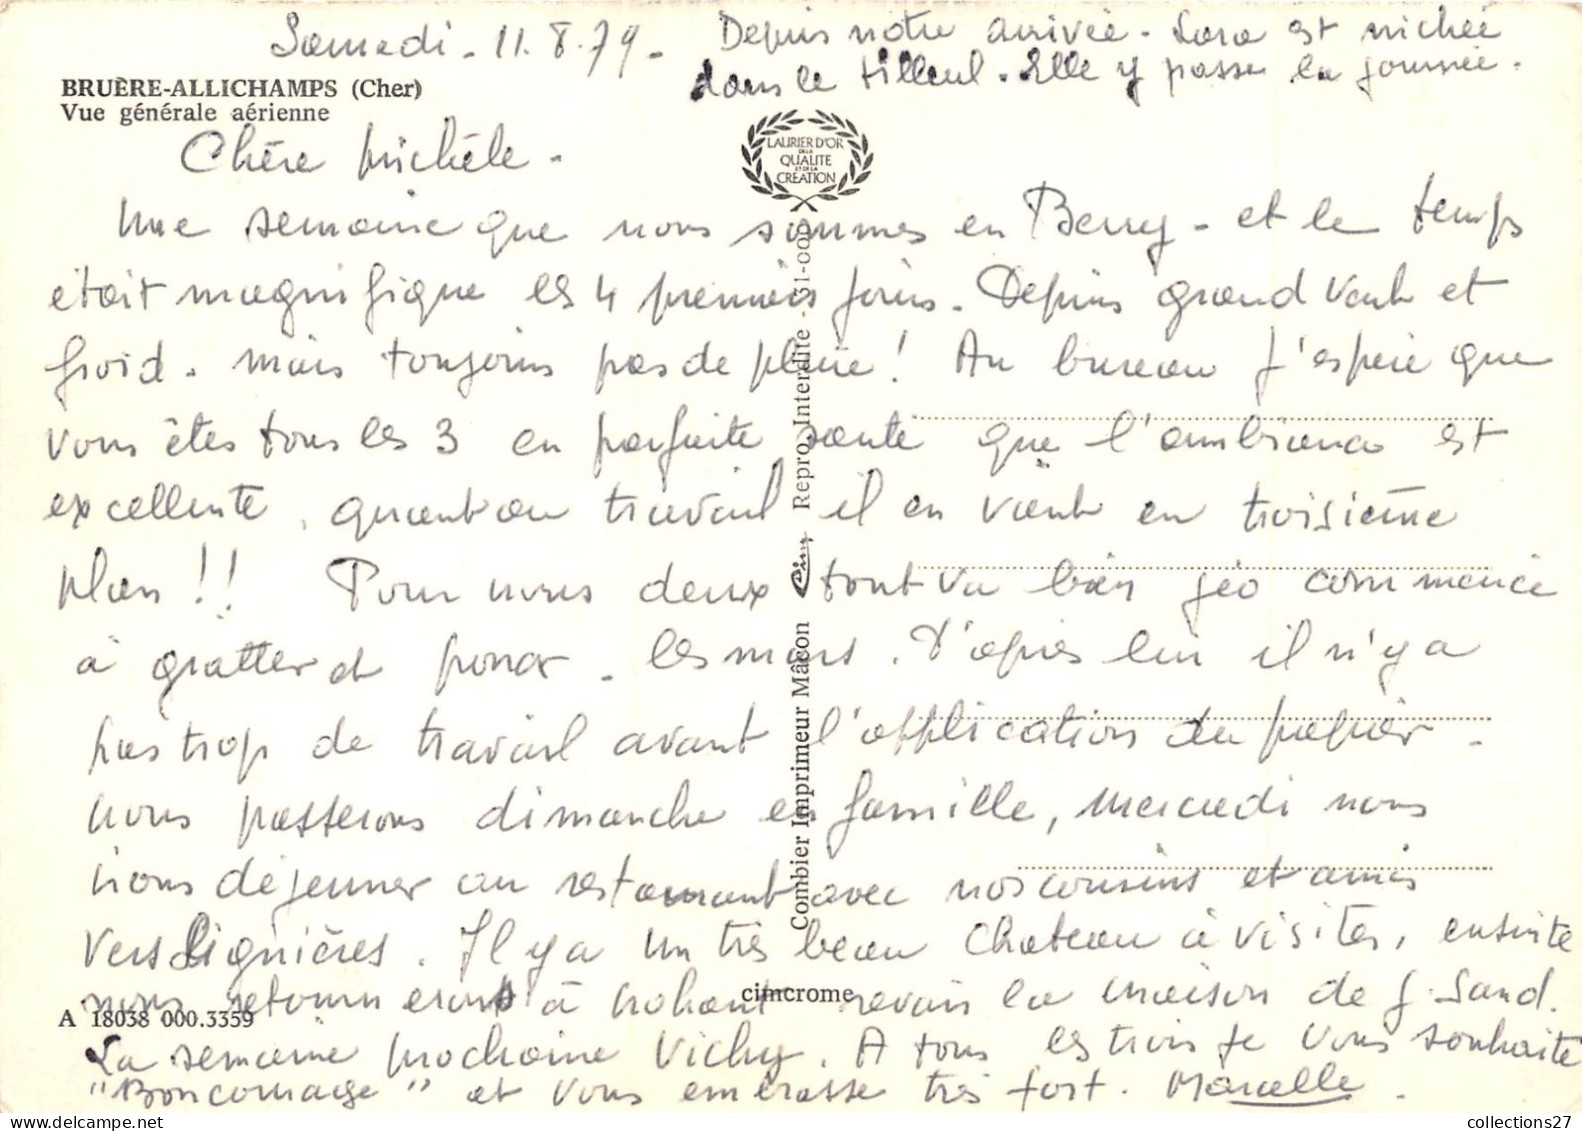 Samedi - 11.8.79 -
Depuis notre arrivée - Lara est nichée
dans le tilleul. Elle y passe la journée.
BRUÈRE-ALLICHAMPS (Cher)
Vue générale aérienne
LAURIER D'OR
DE LA
QUALITE
ET DE LA
CREATION
Chère Michèle -
Une semaine que nous sommes en Berry - et le temps
était magnifique les 4 premiers jours. Depuis grand vent et
froid. mais toujours pas de pluie! Au bureau j'espère que
vous êtes tous les 3 en parfaite santé que l'ambiance est
excellente, quant au travail il en vient en troisième
plan!! Pour nous deux tout va bien Géo commence
à gratter et poncer les murs. D'après lui il n'y a
pas trop de travail avant l'application du papier.
nous passerons dimanche en famille, Mercredi nous
irons déjeuner au restaurant avec nos cousins et amis
vers Lignières. Il y a un très beau Chateau à visiter, ensuite
nous retournerons à Nohant revoir la maison de G. Sand.
La semaine prochaine Vichy. A tous les trois je vous souhaite
"Bon courage" et vous embrasse très fort. Marcelle.
Combier Imprimeur Mâcon Cim Repro. Interdite - 31-00
cimcrome
A 18038 000.3359
collections27